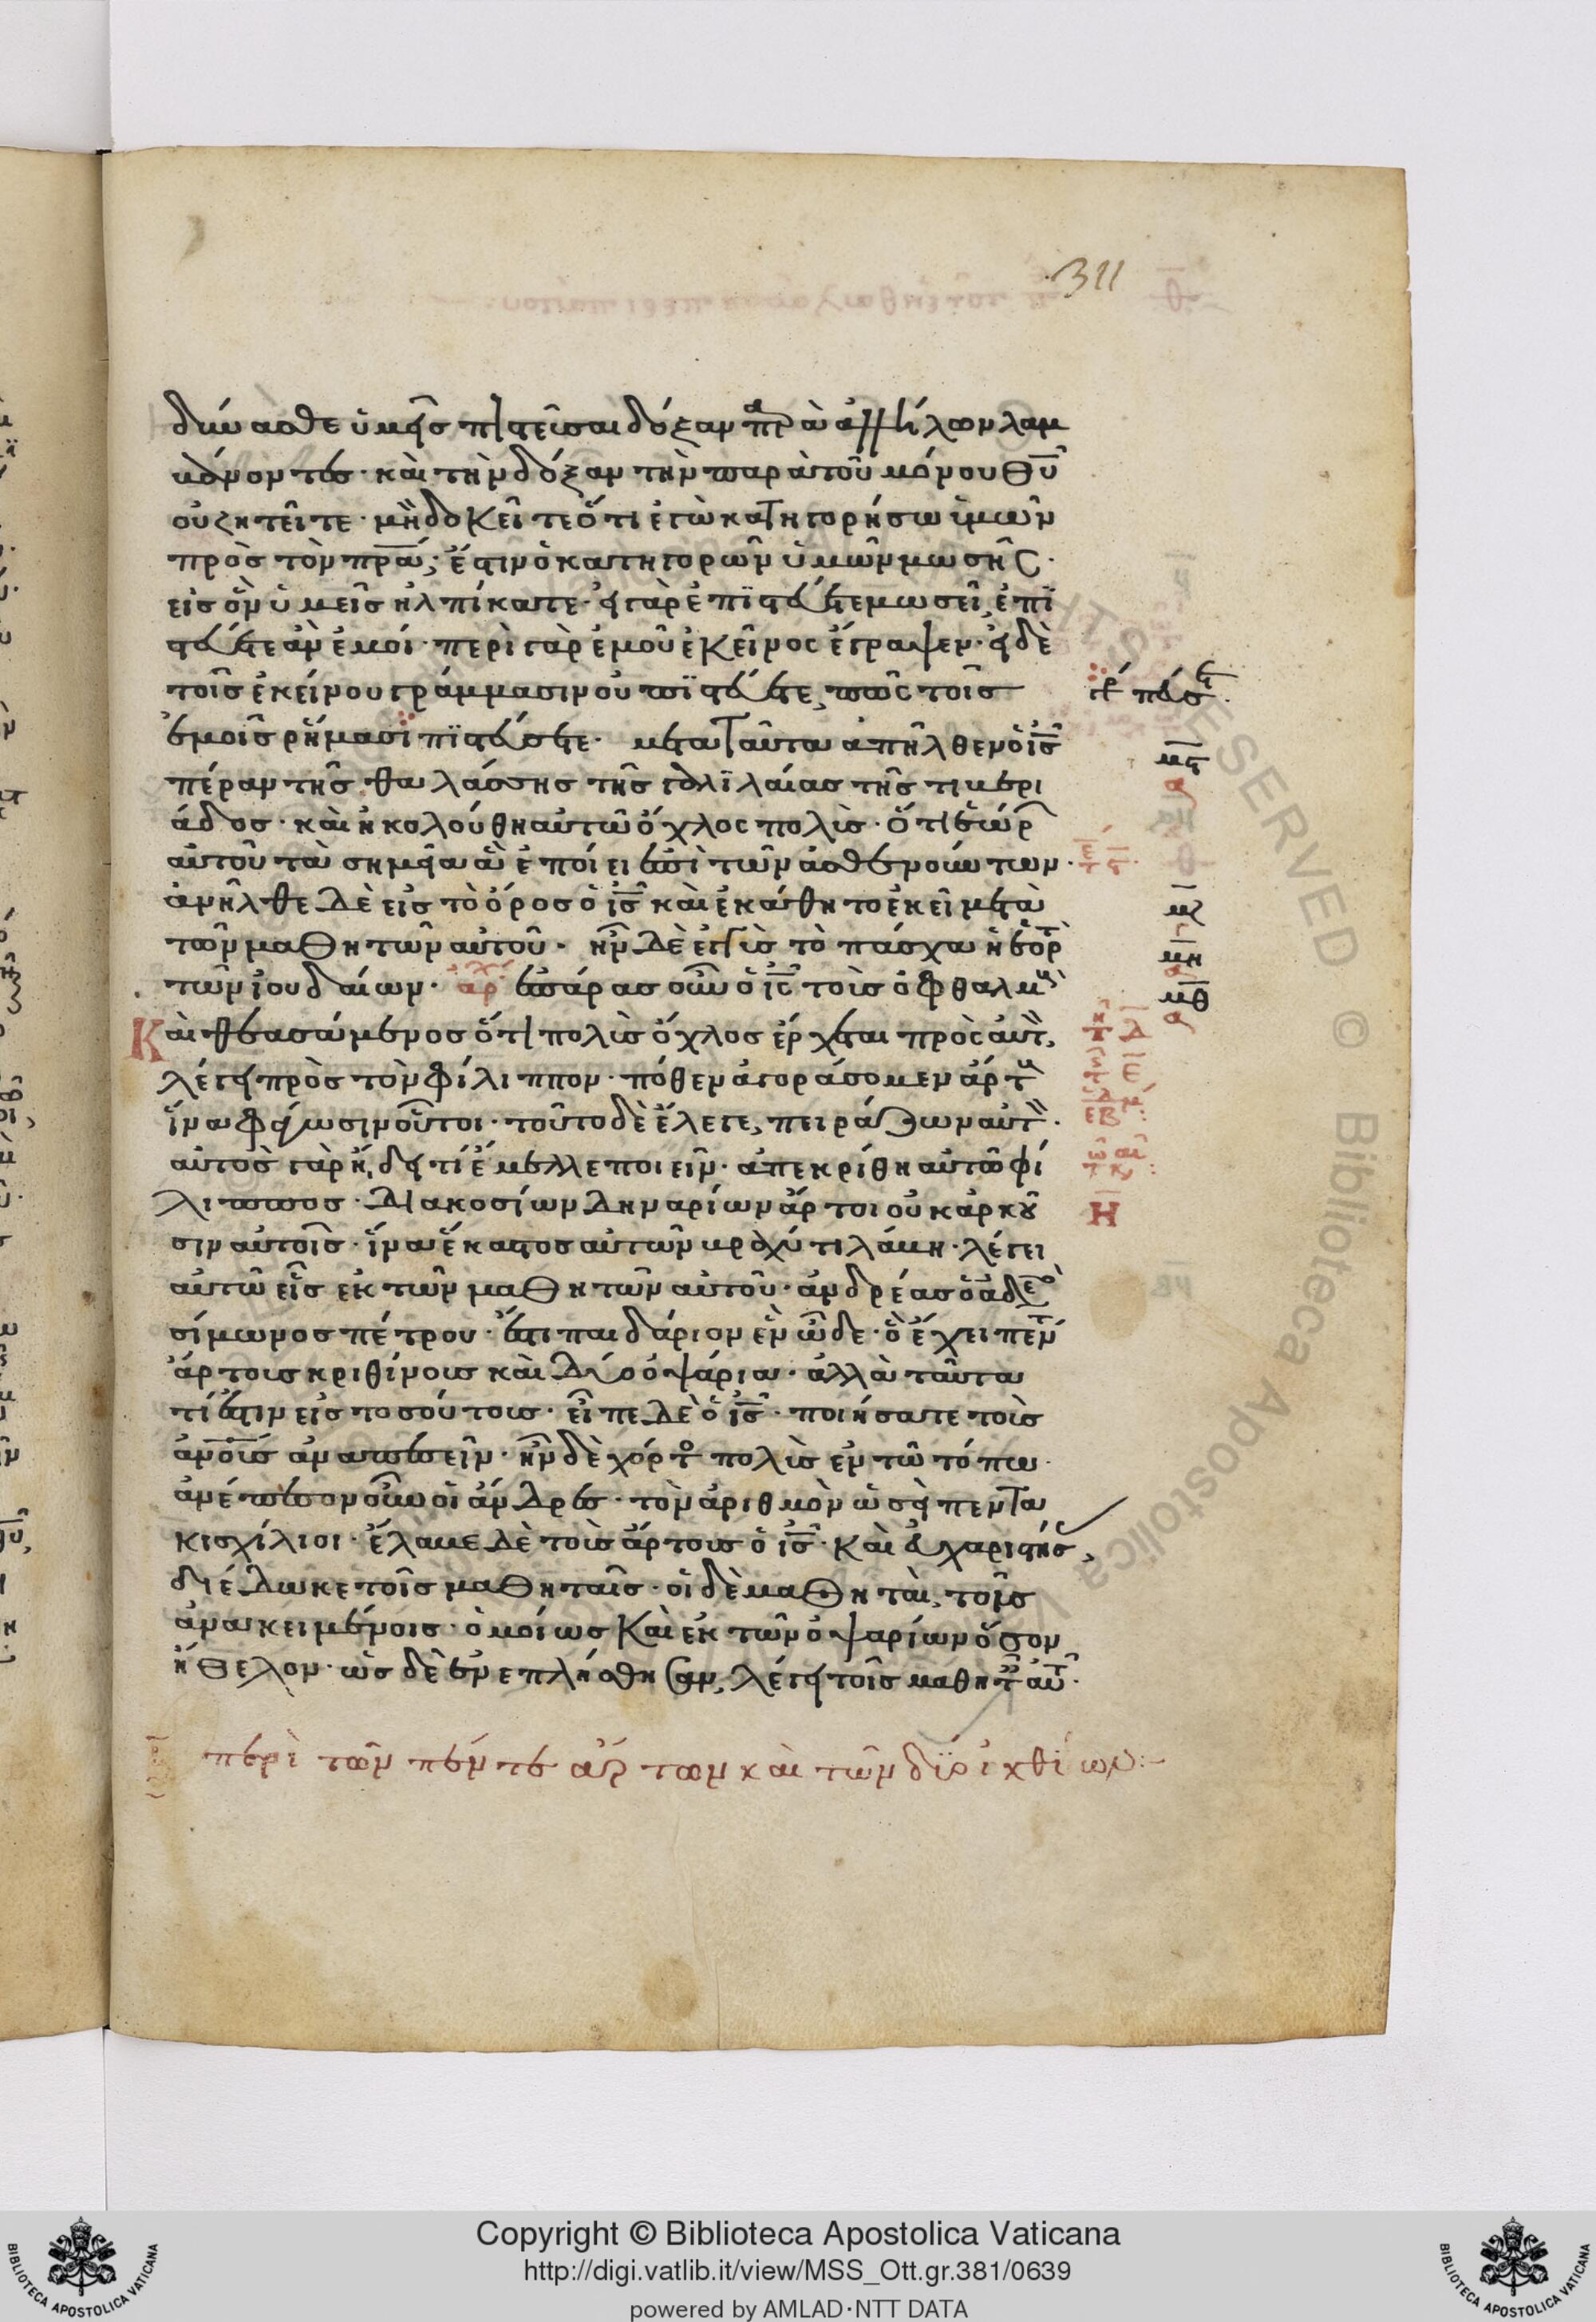 311
δύνασθε ὑμεῖς πιστεῦσαι δόξαν πρὰ ἀλλήλων λαμ
βάνοντες· καὶ τὴν δόξαν τὴν παρὰ τοῦ μόνου θυ
οὐ ζητεῖτε· μὴ δοκεῖτε ὅτι ἐγὼ κατηγορήσω ὑμῶν
πρὸς τὸν πρα, ἔστιν ὁ κατηγορῶν ὑμῶν μωσῆς·
εἰς ὃν ὑμεῖς ἠλπίκατε· εἰ γὰρ ἐπϊστεύετε μωσεῖ, ἐπϊ
στεύετε ἂν ἐμοί· περὶ γὰρ ἐμοῦ ἐκεῖνος ἔγραψεν· εἰ δὲ
τοῖς ἐκείνου γράμμασιν οὐ πϊστεύετε, πῶς τοῖς
ἐμοῖς ῥήμασι πϊστεύσετε· μετα ταῦτα ἀπῆλθεν ὁ ις
πέραν τῆς θαλάσσης τῆς γαλϊλαίας τῆς τιβερι
άδος· καὶ ἠκολούθη αὐτῶ ὄχλος πολὺς· ὅτι ἑώρ
αὐτοῦ τὰ σημεῖα ἃ ἐποίει ἐπὶ τῶν ἀσθενούντων·
ἀνῆλθε δὲ εἰς τὸ ὄρος ὁ ις καὶ ἐκάθητο ἐκεῖ μετὰ
τῶν μαθητῶν αὐτοῦ· ἦν δὲ ἐγγὺς τὸ πάσχα ἡ ἑορτ
τῶν ἰουδαίων· ἀρχ ἐπάρας οὖν ὁ ις τοὺς ὀφθαλμ
Καὶ θεασάμενος ὅτι πολὺς ὄχλος ἔρχεται πρὸς αὐτ,
λέγει πρὸς τὸν φίλιππον· πόθεν ἀγοράσομεν ἄρτ
ἵνα φάγωσιν οὗτοι· τοῦτο δὲ ἔλεγε, πειράζων αὐτ·
αὐτὸς γὰρ ἤδει τί ἔμελλε ποιεῖν· ἀπεκρίθη αὐτῶ φί
λιππος· διακοσίων δηναρίων ἄρτοι οὐκ ἀρκοῦ
σιν αὐτοῖς· ἵνα ἕκαστος αὐτῶν βραχύ τι λάβη· λέγει
αὐτῶ εἷς ἐκ τῶν μαθητῶν αὐτοῦ· ἀνδρέας ὁ ἀδε
σίμωνος πέτρου· ἔστι παιδάριον ἓν ὧδε· ὃ ἔχει πέντ
ἄρτους κριθίνους καὶ δύο ὀψάρια· ἀλλὰ ταῦτα
τί ἐστιν εἰς τοσούτους· εἶπε δὲ ὁ ις· ποιήσατε τοὺς
ανους ἀναπεσεῖν· ἦν δὲ χόρτο πολὺς ἐν τῶ τόπω·
ἀνέπεσον οὖν οἱ ἄνδρες· τὸν ἀριθμὸν ὡσεὶ πεντα
κισχίλιοι· ἔλαβε δὲ τοὺς ἄρτους ὁ ις· καὶ εὐχαριστής,
διέδωκε τοῖς μαθηταῖς· οἱ δὲ μαθηταὶ, τοῖς
ἀνακειμένοις· ὁμοίως καὶ ἐκ τῶν ὀψαρίων ὅσον
ἤθελον· ὡς δὲ ἐνεπλήσθησαν, λέγει τοῖς μαθητ αὐτ·
περὶ τῶν πέντε ἄρτων καὶ τῶν δύο ἰχθύων:-
μϛ
μζ
μη
μθ
Η
Copyright © Biblioteca Apostolica Vaticana
http://digi.vatlib.it/view/MSS_Ott.gr.381/0639
powered by AMLAD·NTT DATA